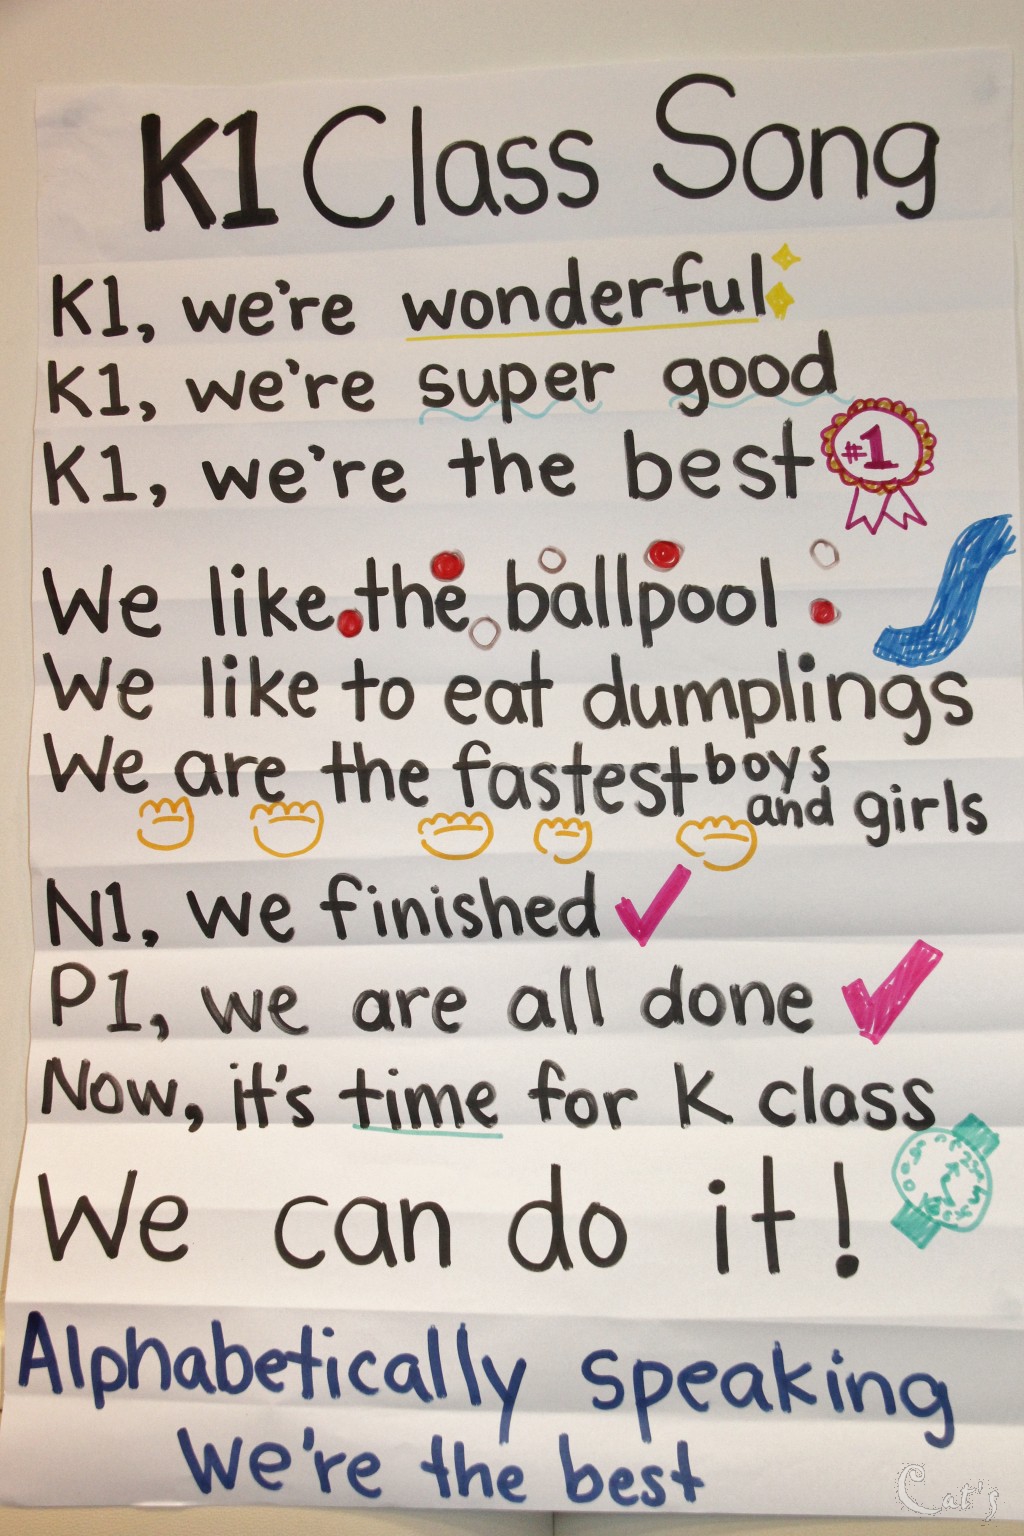 K1 Class Song
K1, we're wonderful
K1, we're super good
K1, we're the best
#1
We like the ballpool
We like to eat dumplings
We are the fastest boys and girls
N1, we finished
P1, we are all done
Now, it's time for K class
We can do it!
Alphabetically speaking
we're the best
Cat's